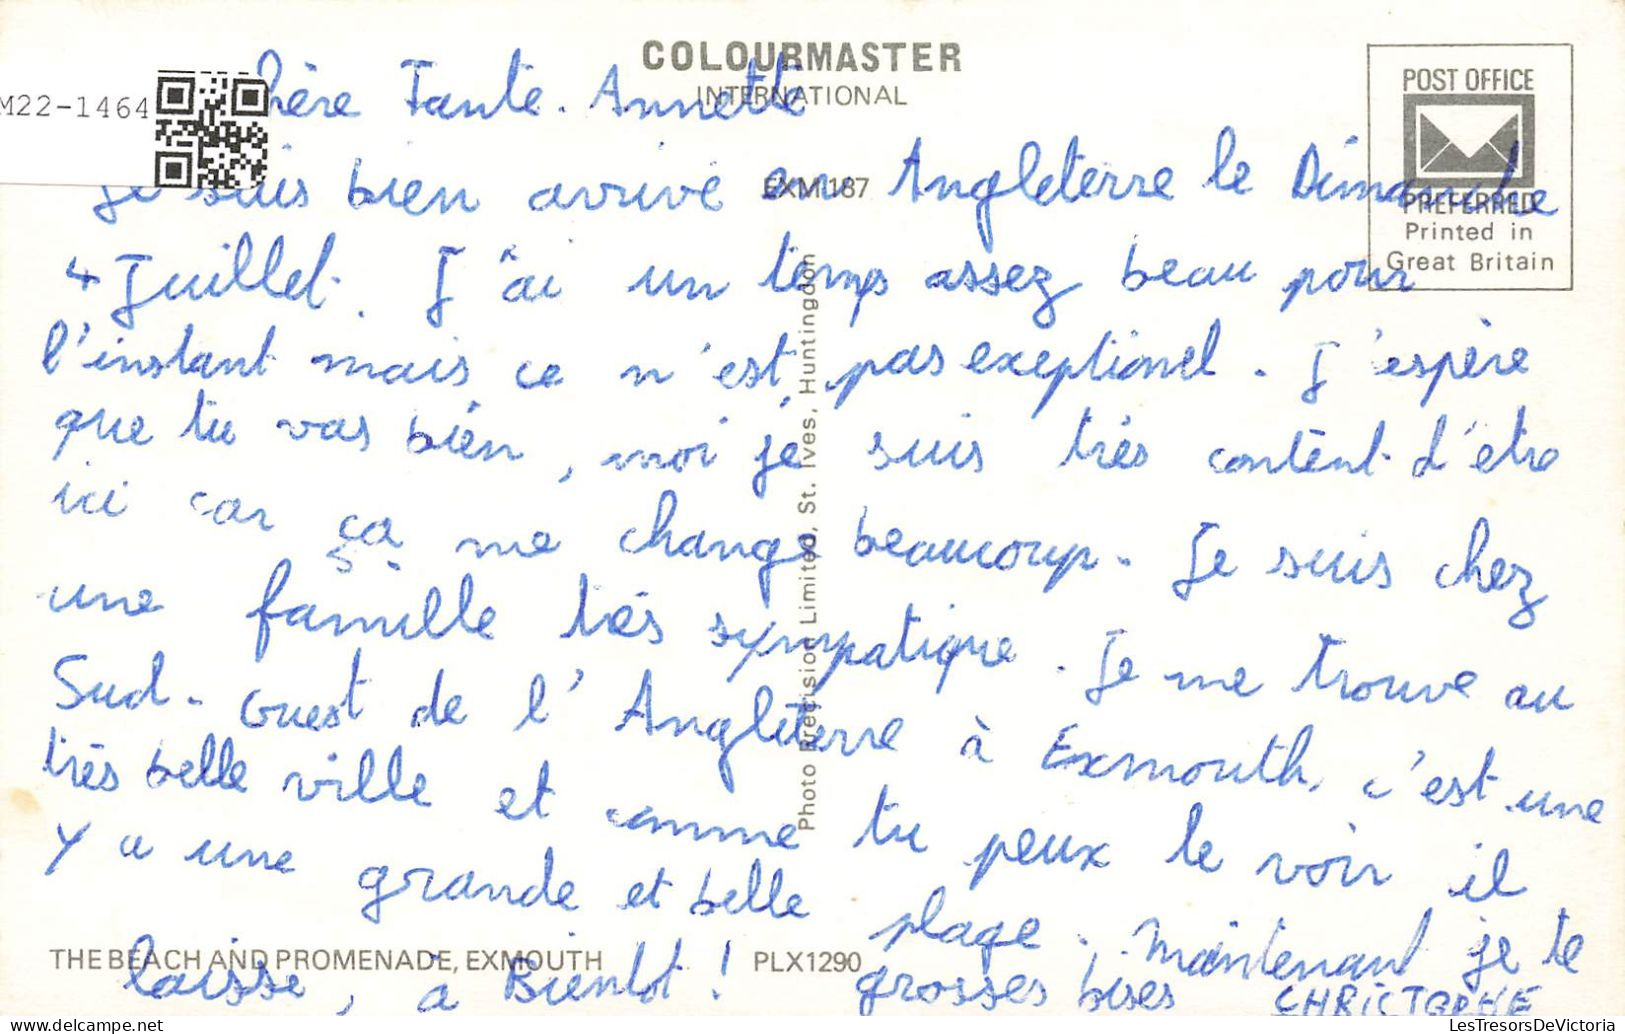 COLOURMASTER
INTERNATIONAL
POST OFFICE
PREFERRED
Printed in
Great Britain
M22-1464
EXM 187
hère Tante. Annette
Je suis bien arrivé en Angleterre le Dimanche
4 Juillet. J'ai un temps assez beau pour
l'instant mais ce n'est pas exeptionel. J'espère
que tu vas bien, moi je suis très content d'etre
ici car ça me change beaucoup. Je suis chez
une famille très sympatique. Je me trouve au
Sud-Ouest de l'Angleterre à Exmouth, c'est une
très belle ville et comme tu peux le voir il
y a une grande et belle plage. Maintenant je te
laisse, à Bientot ! grosses bises CHRICTOPHE
Photo Precision Limited, St. Ives, Huntingdon
THE BEACH AND PROMENADE, EXMOUTH
PLX1290
LesTresorsDeVictoria.com